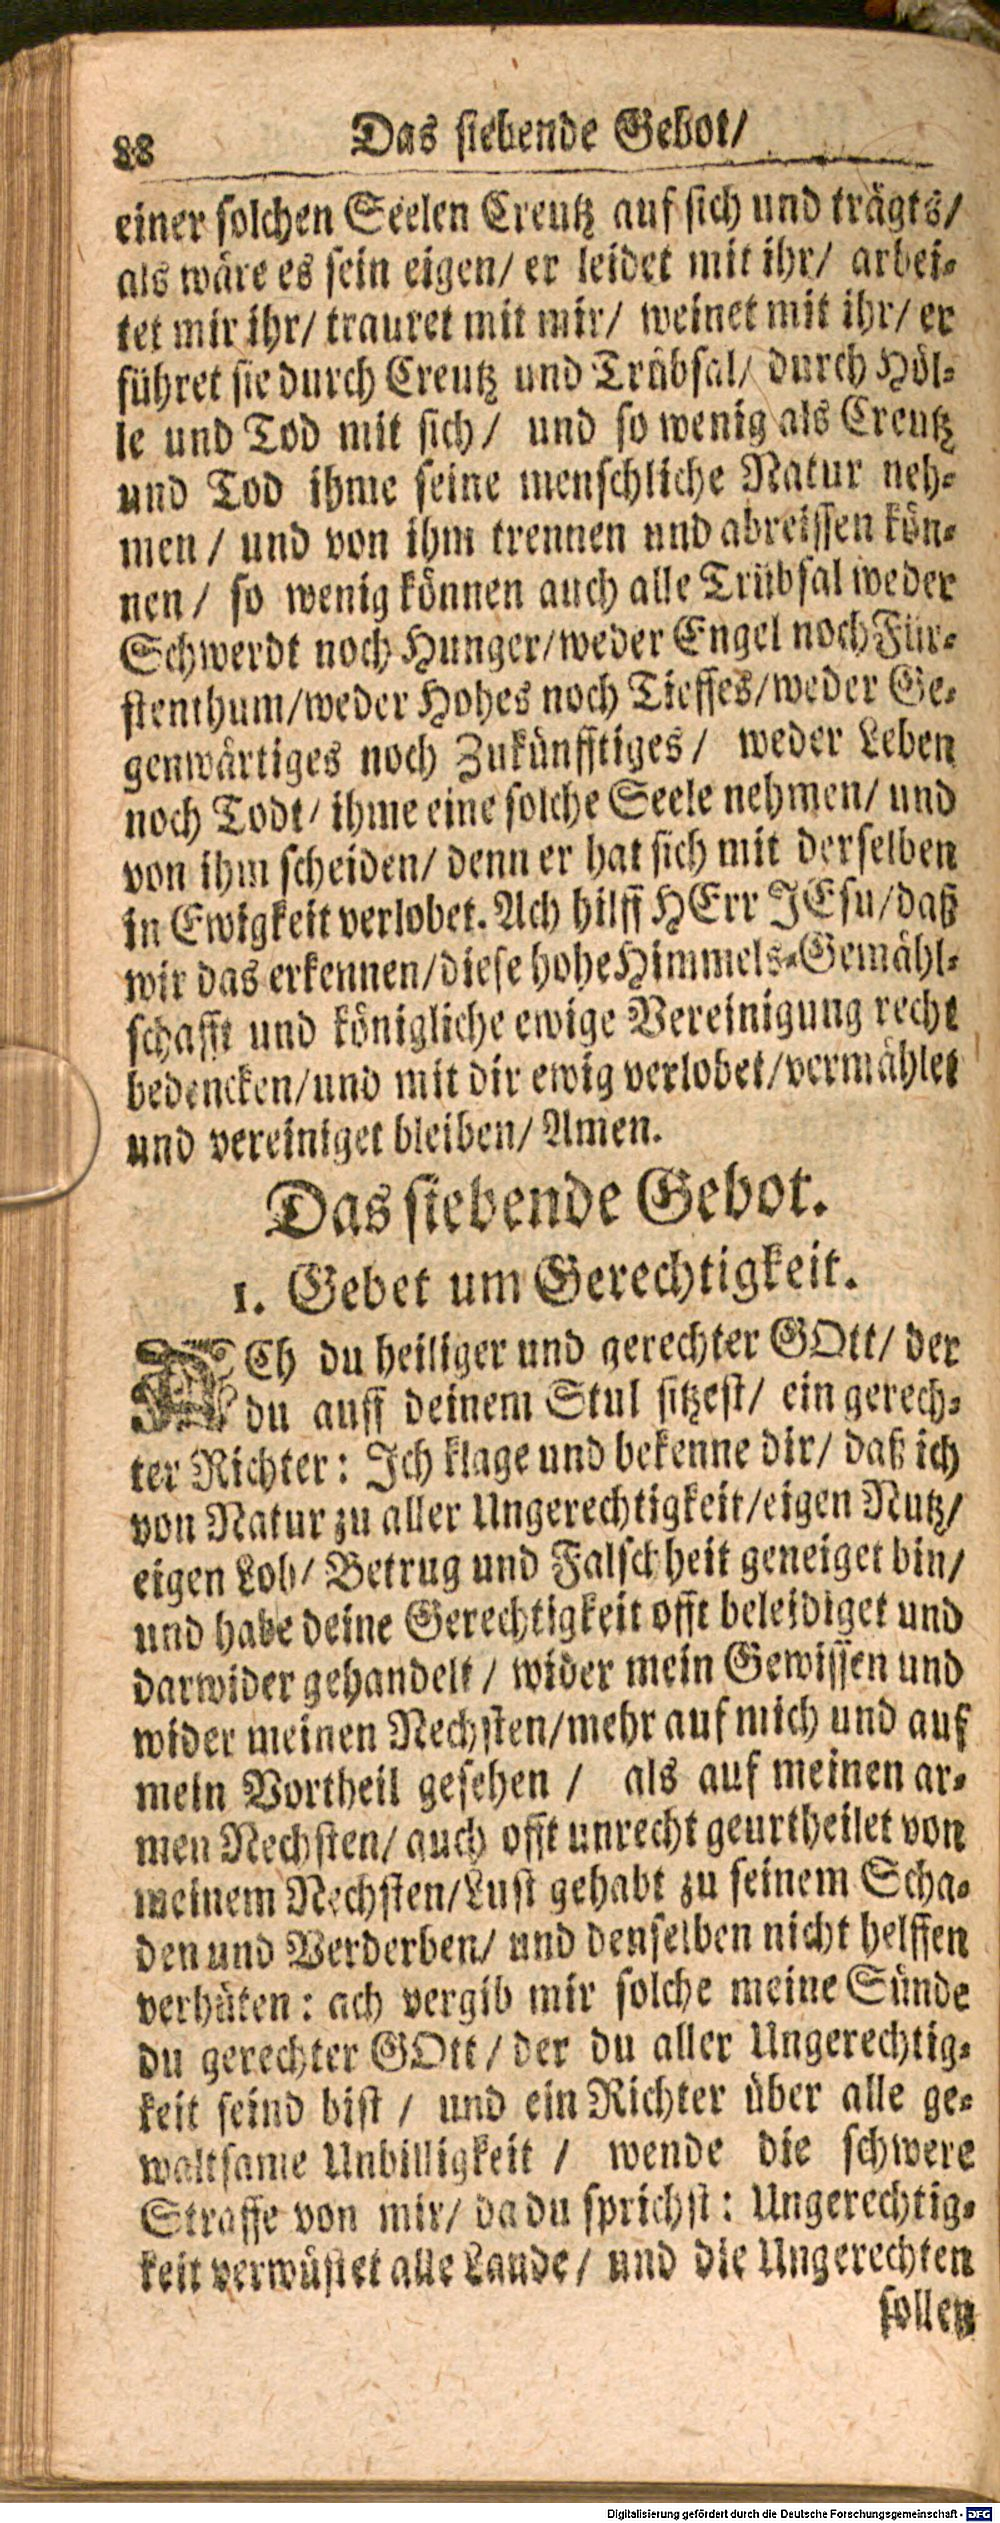 88
Das siebende Gebot/
einer solchen Seelen Creutz auf sich und trägts/
als wäre es sein eigen/ er leidet mit ihr/ arbei-
tet mir ihr/ trauret mit mir/ weinet mit ihr/ er
führet sie durch Creutz und Trübsal/ durch Höl-
le und Tod mit sich/ und so wenig als Creutz
und Tod ihme seine menschliche Natur neh-
men/ und von ihm trennen und abreissen kön-
nen/ so wenig können auch alle Trübsal weder
Schwerdt noch Hunger/weder Engel noch Für-
stenthum/weder Hohes noch Tieffes/weder Ge-
genwärtiges noch Zukünfftiges/ weder Leben
noch Todt/ ihme eine solche Seele nehmen/ und
von ihm scheiden/ denn er hat sich mit derselben
in Ewigkeit verlobet. Ach hilff HErr JEsu/daß
wir das erkennen/diese hohe Himmels-Gemähl-
schafft und königliche ewige Vereinigung recht
bedencken/und mit dir ewig verlobet/vermählet
und vereiniget bleiben/ Amen.
Das siebende Gebot.
1. Gebet um Gerechtigkeit.
ACh du heiliger und gerechter GOtt/ der
du auff deinem Stul sitzest/ ein gerech-
ter Richter: Ich klage und bekenne dir/ daß ich
von Natur zu aller Ungerechtigkeit/eigen Nutz/
eigen Lob/ Betrug und Falschheit geneiget bin/
und habe deine Gerechtigkeit offt beleidiget und
darwider gehandelt/ wider mein Gewissen und
wider meinen Nechsten/mehr auf mich und auf
mein Vortheil gesehen/ als auf meinen ar-
men Nechsten/ auch offt unrecht geurtheilet von
meinem Nechsten/Lust gehabt zu seinem Scha-
den und Verderben/ und denselben nicht helffen
verhüten: ach vergib mir solche meine Sünde
du gerechter GOtt/ der du aller Ungerechtig-
keit feind bist/ und ein Richter über alle ge-
waltsame Unbilligkeit/ wende die schwere
Straffe von mir/ da du sprichst: Ungerechtig-
keit verwüstet alle Lande/ und die Ungerechten
sollen
Digitalisierung gefördert durch die Deutsche Forschungsgemeinschaft - DFG